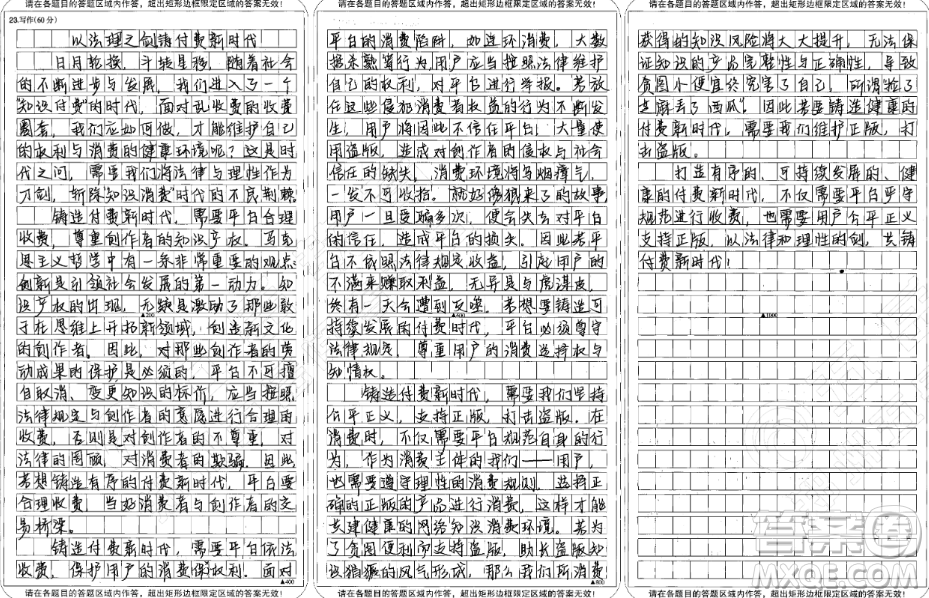 请在各题目的答题区域内作答，超出矩形边框限定区域的答案无效！
23.写作(60分)
以法理之剑铸付费新时代
日月轮换，斗转星移，随着社会
的不断进步与发展，我们进入了一个
知识付费"的时代，面对乱收费的收费
圈套，我们应如何做，才能维护自己
的权利与消费的健康环境呢？这是时
代之问，需要我们将法律与理性作为
刀剑，斩除知识消费"时代的不良荆棘。
铸造付费新时代，需要平台合理
收费，尊重创作者的知识产权。马克
思主义哲学中有一条非常重要的观点：
创新是引领社会发展的第一动力。知
识产权的出现，无疑是激励了那些敢
于在思维上开拓新领域，创造新文化
的创作者。因此，对那些创作者的劳
动成果的保护是必须的，平台不可擅
自取消、变更知识的标价，应当按照
法律规定与创作者的意愿进行合理的
收费，否则是对创作者的不尊重，对
法律的罔顾，对消费者的欺骗。因此
若想铸造有序的付费新时代，平台要
合理收费，当好消费者与创作者的交
易桥梁。
铸造付费新时代，需要平台依法
收费，保护用户的消费权利。面对
▲400
请在各题目的答题区域内作答，超出矩形边框限定区域的答案无效！
请在各题目的答题区域内作答，超出矩形边框限定区域的答案无效！
平台的消费陷阱，如连环消费，大数
据杀熟等行为，用户应当按照法律维护
自己的权利，对平台进行举报。若放
任这些侵犯消费者权益的行为不断发
生，用户将因此不信任平台，大量使
用盗版，造成对创作者的侵权与社会
信任的缺失，消费环境将乌烟瘴气，
一发不可收拾。就好像狼来了的故事，
用户一旦受骗多次，便会失去对平台
的信任，造成平台的损失。因此若平
台不依照法律规定收益，引起用户的
不满来赚取利益，无异是与虎谋皮，
终有一天会遭到反噬。若想要铸造可
持续发展的付费时代，平台必须遵守
法律规定，尊重用户的消费选择权与
知情权。
铸造付费新时代，需要我们坚持
公平正义，支持正版，打击盗版。在
消费时，不仅需要平台规范自身的行
为，作为消费主体的我们——用户，
也需要遵守理性的消费规则，选择正
确的正版的产品进行消费，这样才能
共建健康的网络知识消费环境。若为
了贪图便利而支持盗版，助长盗版知
识猖獗的风气形成，那么我们所消费
请在各题目的答题区域内作答，超出矩形边框限定区域的答案无效！
请在各题目的答题区域内作答，超出矩形边框限定区域的答案无效！
获得的知识风险将大大提升，无法保
证知识的产品完整性与正确性，导致
贪图小便宜终究害了自己，所谓捡了
芝麻丢了西瓜"，因此若要铸造健康的
付费新时代，需要我们维护正版，打
击盗版。
打造有序的，可持续发展的、健
康的付费新时代，不仅需要平台严守
规范进行收费，也需要用户公平正义
支持正版，以法律和理性的剑，共铸
付费新时代！
▲1000
请在各题目的答题区域内作答，超出矩形边框限定区域的答案无效！
答案圈
MXQE.COM